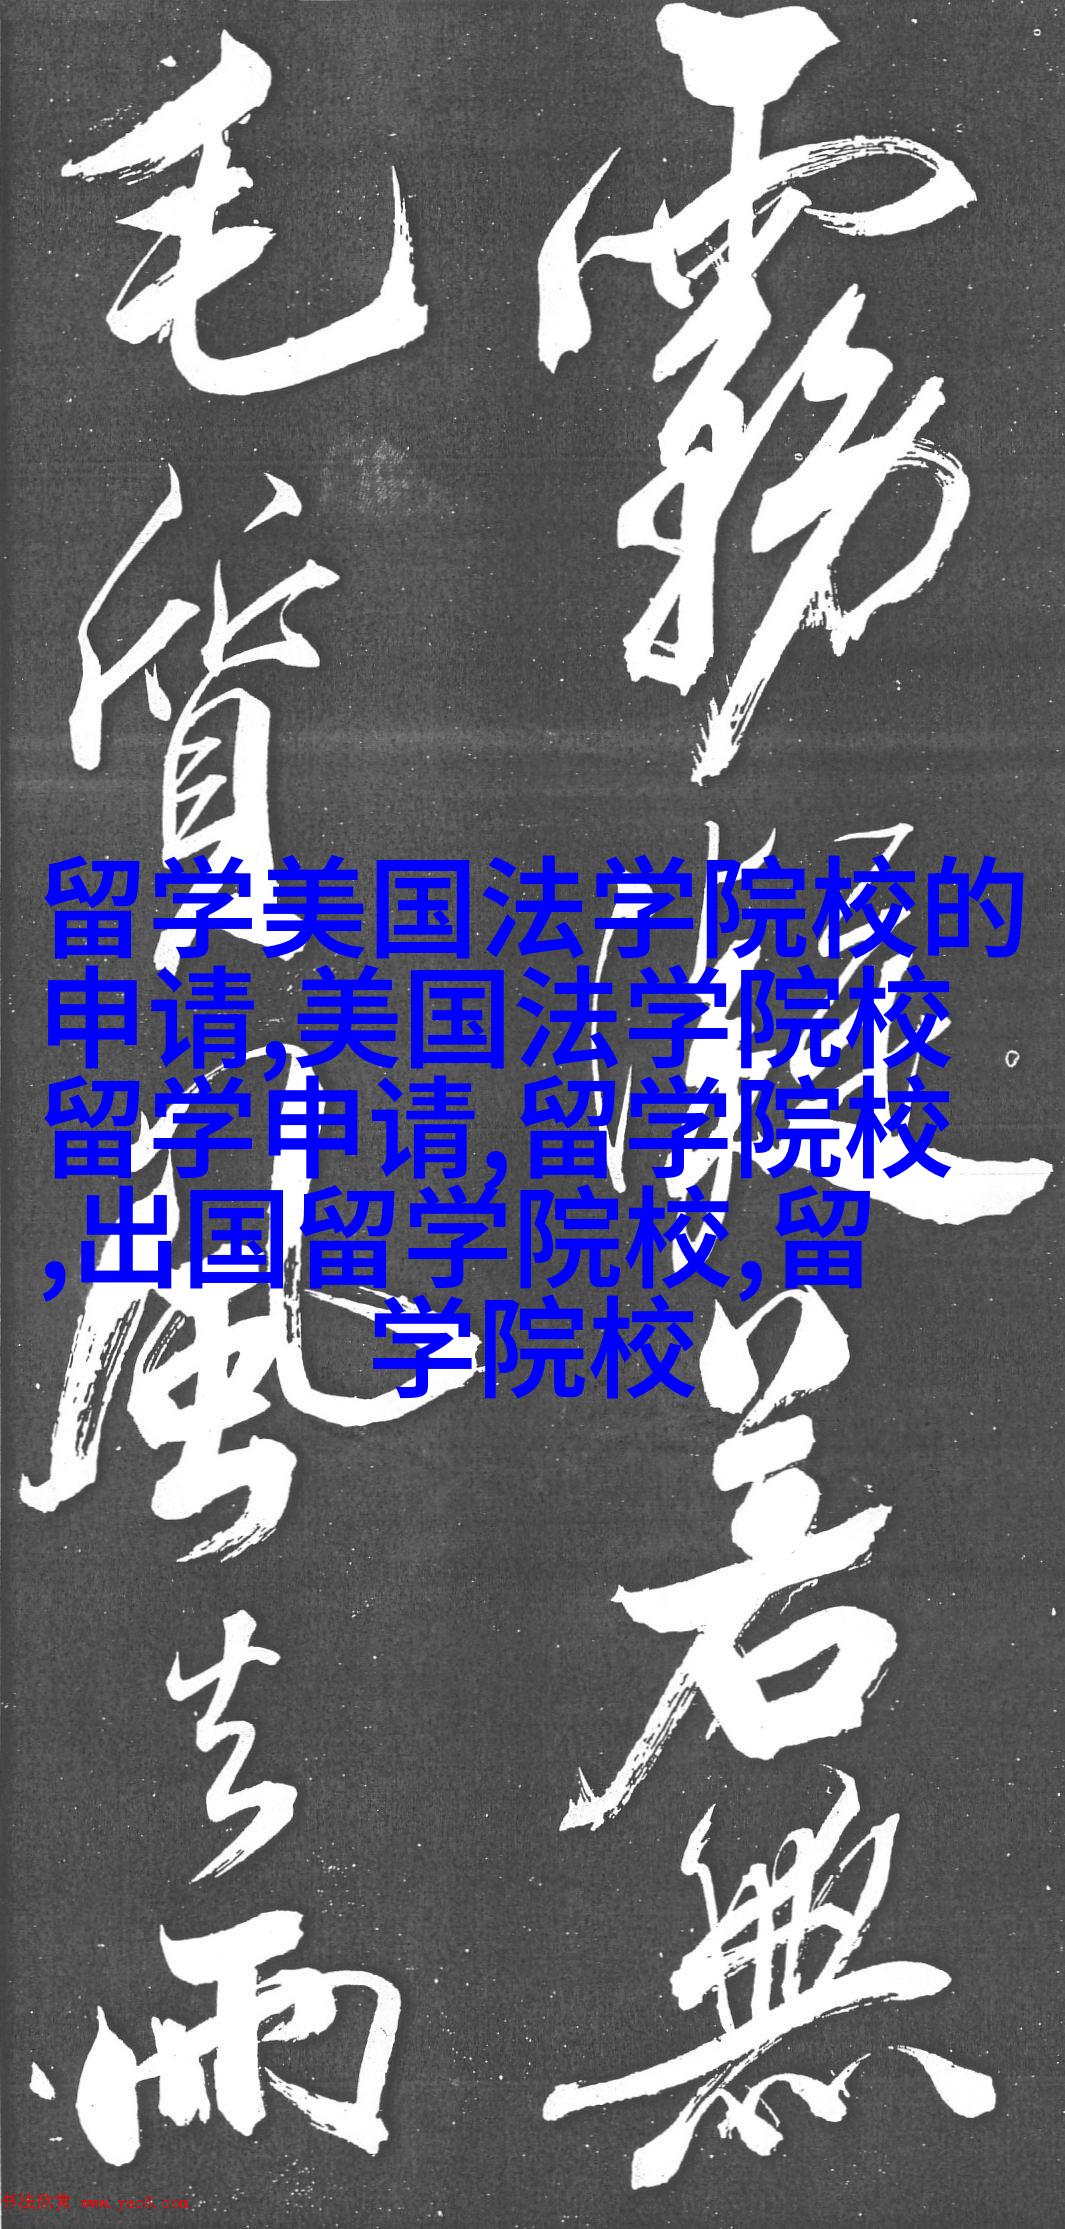 霧凝若無
毛質風去雨
留学美国法学院校的
申请,美国法学院校
留学申请,留学院校
,出国留学院校,留
学院校
书法欣赏 www.yac8.com